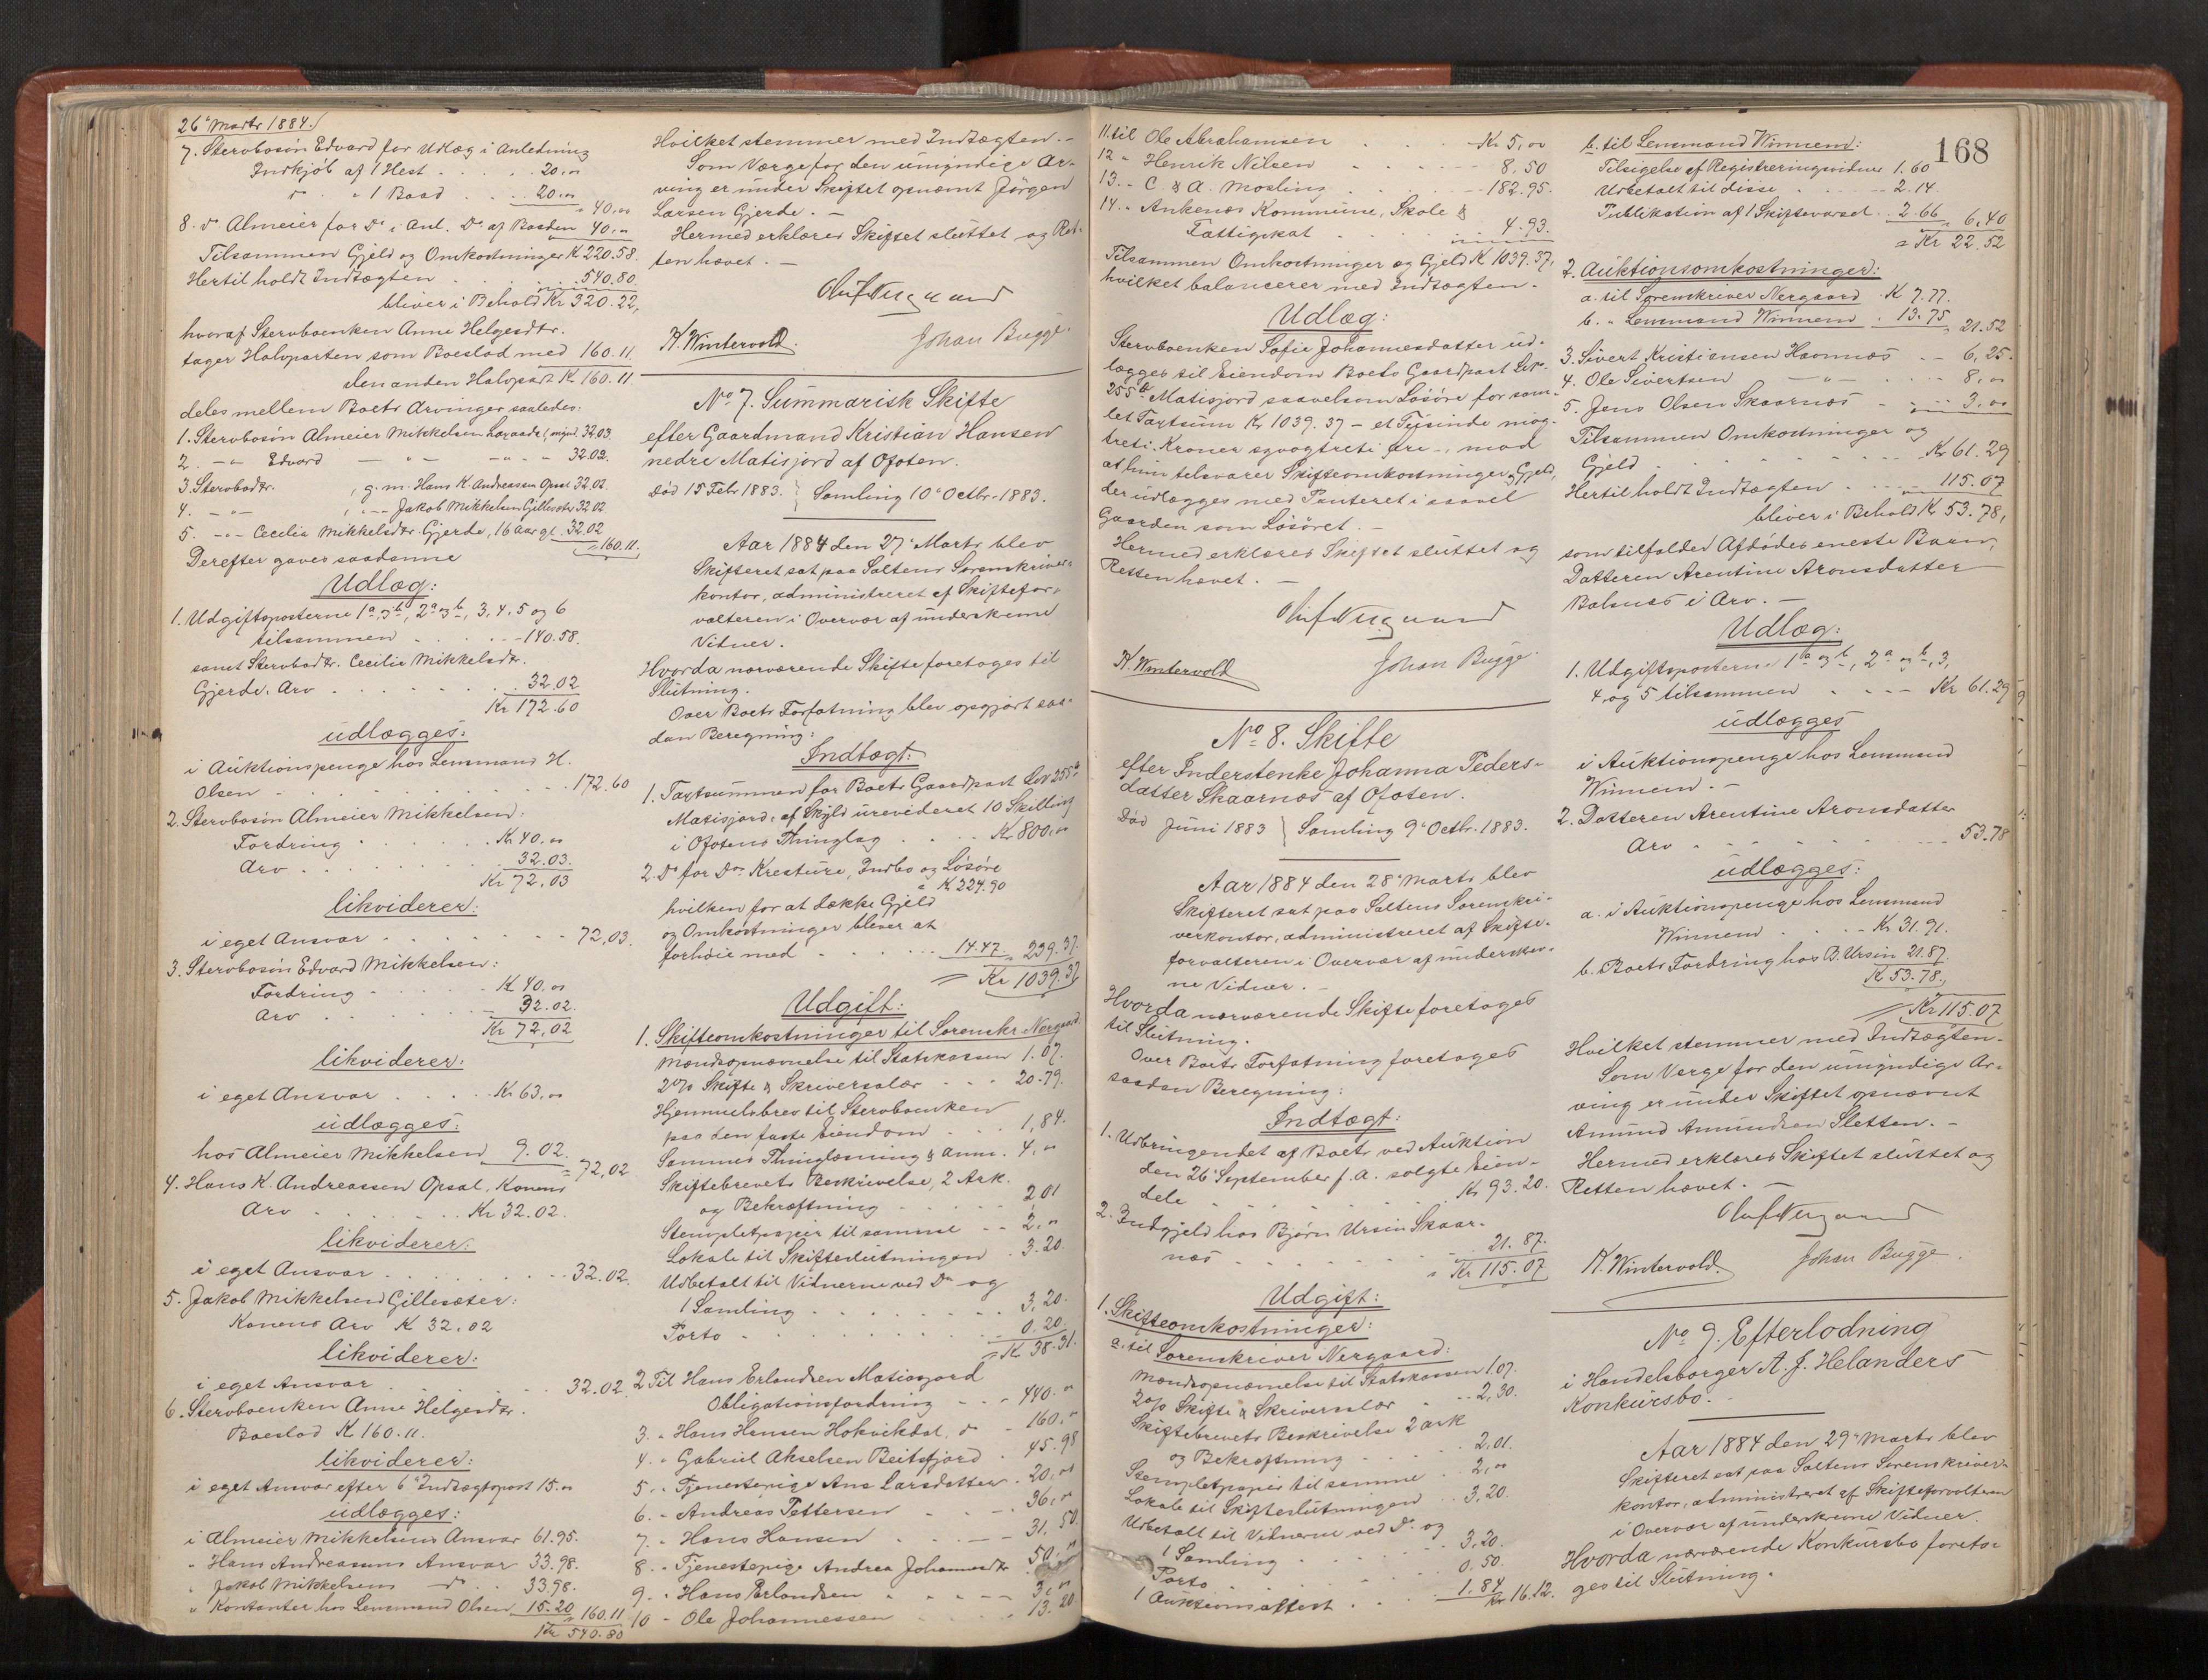 26de Marts 1884.
7. Stervbosøn Edvard for Udlæg i Anledning
Indkjøb af 1 Hest . . . . 20.00
do " 1 Baad . . . 20.00
= 40.00
8. do Almeier for Do i Anl. Do af Baaden 40.00
Tilsammen Gjeld og Omkostninger K 220.58.
Hertil holdt Indtægten . . . 540.80
bliver i Behold Kr 320.22,
hvoraf Stervboenken Anne Helgesdtr.
tager Halvparten som Boeslod med 160.11.
den anden Halvpart K 160.11
deles mellem Boets Arvinger saaledes:
1. Stervbosøn Almeier Mikkelsen mynd. 32.03.
2. -"- Edvard -"- -"- 32.02.
3. Stervbodtr. , g. m. Hans K. Andreassen Opsal 32.02.
4. -"- , -"- Jakob Mikkelsen Gillesæter 32.02
5. -"- Cecilie Mikkelsdtr Gjerde, 16 Aar gl. 32.02
= 160.11.
Derefter gaves saadanne
Udlæg:
1. Udgiftsposterne 1a og b, 2a og b, 3, 4, 5 og 6
tilsammen . . . - 140.58.
samt Stervbodtr. Cecilie Mikkelsdtr.
Gjerde, Arv . . . . 32.02
Kr 172.60
udlægges:
i Auktionspenge hos Lensmand H.
Olsen . . . . . 172.60
2. Stervbosøn Almeier Mikkelsen:
Fordring . . . . Kr 40.00
Arv . . . . . 32.03.
Kr 72.03
likviderer:
i eget Ansvar . . . . . - 72,03.
3. Stervbosøn Edvard Mikkelsen:
Fordring . . . . K 40.00
Arv . . . . . 32.02.
Kr 72,02
likviderer:
i eget Ansvar . . . . Kr 63,00
udlægges:
hos Almeier Mikkelsen 9.02.
= 72,02
4. Hans K. Andreassen Opsal, Konens
Arv . . . . . Kr 32.02.
likviderer:
i eget Ansvar . . . . . 32.02.
5. Jakob Mikkelsen Gillesæter:
Konens Arv K 32.02
likviderer:
i eget Ansvar . . . . 32.02
6. Stervboenken Anne Helgesdtr.
Boeslod K 160.11.
likviderer:
i eget Ansvar efter 6te Indtægtspost 15.00
udlægges:
i Almeier Mikkelsens Ansvar 61.95.
" Hans Andreassens Ansvar 33.98.
" Jakob Mikkelsens do . . 33.98.
" Kontanter hos Lensmand Olsen 15.20 = 160.11
Kr 540.80
Hvilket stemmer med Indtægten. -
Som Værge for den umyndige Ar-
ving er under Skiftet opnævnt Jørgen
Larsen Gjerde. -
Hermed erklæres Skiftet sluttet og Ret-
ten hævet. -
Oluf Nergaard
K. Wintervold. Johan Bugge.
No 7. Summarisk Skifte
efter Gaardmand Kristian Hansen
nedre Matisjord af Ofoten.
Død 15 Febr 1883. } Samling 10de Octbr. 1883.
Aar 1884 den 27de Marts blev
Skifteret sat paa Saltens Sorenskriver-
kontor, administreret af Skiftefor-
valteren i Overvær af underskrevne
Vidner.
Hvorda nærværende Skifte foretoges til
Slutning.
Over Boets Forfatning blev opgjort saa-
dan Beregning:
Indtægt:
1. Taxtsummen for Boets Gaardpart Lnr 255b
Matisjord, af Skyld urevideret 10 Skilling
i Ofotens Thinglag . . Kr 800.00
2. Do for Dos Kreature, Indbo og Løsøre
K 224.90
hvilken for at dække Gjeld
og Omkostninger bliver at
forhøie med . . . . 14.47 = 239.37.
= Kr 1039.37
Udgift:
1. Skifteomkostninger til Sorenskr Nergaard.
Mandsopnævnelse til Statskassen 1.07.
2% Skifte & Skriversalær . . . 20.79.
Hjemmelsbrev til Stervboenken
paa den faste Eiendom . . . 1,84.
Sammes Thinglæsning & Anm. 4.00
Skiftebrevets Beskrivelse, 2 Ark.
og Bekræftning . . . . 2.01
Stempletpapir til samme . . 2.00
Lokale til Skifteslutningen . 3.20.
Udbetalt til Vidnerne ved Do og
1 Samling . . . . . 3,20.
Porto . . . . . . 0.20.
= K 38.31.
2 Til Hans Erlandsen Matisjord
Obligationsfordring . . - 440.00
3. " Hans Hansen Hokvikdal, do - 160.00
4. " Gabriel Akselsen Beitsfjord . 45.98
5. " Tjenestepige Ane Larsdatter . 20.00
6. " Andreas Pettersen . . . 36.00
7. " Hans Hansen . . . 31.50.
8. " Tjenestepige Andrea Johannesdtr 50.00
9. " Hans Erlandsen . . . 3.00
10 " Ole Johannessen . . . 13.20
168
11. til Ole Abrahamsen . . . . Kr 5,00
12 " Henrik Nilsen . . . . 8,50
13. " C. & A. Mosling . . . . 182.95.
14. " Ankenæs Kommune, Skole &
Fattigskat . . . . 4.93.
Tilsammen Omkostninger og Gjeld K 1039.37,
hvilket balancerer med Indtægten.
Udlæg:
Stervboenken Sofie Johannesdatter ud-
lægges til Eiendom Boets Gaardpart Lnr.
255b Matisjord saavelsom Løsøre for sam-
let Taxtsum K 1039.37 - et Tusinde niog-
treti Kroner syvogtreti Øre -, mod
at hun tilsvarer Skifteomkostninger & Gjeld,
der udlægges med Panteret i saavel
Gaarden som Løsøret. -
Hermed erklæres Skiftet sluttet og
Retten hævet. -
Oluf Nergaard
K. Wintervold Johan Bugge.
No 8. Skifte
efter Inderstenke Johanna Peders-
datter Skaarnæs af Ofoten.
Død Juni 1883 } Samling 9de Octbr. 1883.
Aar 1884 den 28de Marts blev
Skifteret sat paa Saltens Sorenskri-
verkontor, administreret af Skifte-
forvalteren i Overvær af underskrev-
ne Vidner. -
Hvorda nærværende Skifte foretoges
til Slutning.
Over Boets Forfatning foretoges
saadan Beregning:
Indtægt:
1. Udbringendet af Boets ved Auktion
den 26de September f. A. solgte Eien-
dele . . . . . Kr 93.20.
2. Indgjeld hos Bjørn Ursin Skaar-
næs . . . . . 21.87.
= Kr 115.07
Udgift:
1. Skifteomkostninger:
a. til Sorenskriver Nergaard:
Mandsopnævnelse til Statskassen 1.07.
2% Skifte & Skriversalær . . 2,30.
Skiftebrevets Beskrivelse 2 Ark
og Bekræftning . . . . 2.01.
Stempletpapir til samme . . 2,00
Lokale til Skifteslutningen . . 3,20.
Udbetalt til Vidnerne ved Do. og
1 Samling . . . . 3,20.
Porto . . . . . 0.50.
1 Auktionsattest . . . . 1.84
Kr 16.12.
b. til Lensmand Winnem:
Tilsigelse af Registreringsvidner 1.60
Udbetalt til disse . . . - 2.14.
Publikation af 1 Skiftevarsel . 2.66 = 6,40
= Kr 22.52
2. Auktionsomkostninger:
a. til Sorenskriver Nergaard . K 7.77.
b. " Lensmand Winnem . 13.75
= 21.52
3. Sivert Kristiansen Havnnæs . - 6,25.
4. Ole Sivertsen -"- . . . 8,00
5. Jens Olsen Skaarnæs . . 3.00
Tilsammen Omkostninger og
Gjeld . . . . . Kr 61.29
Hertil holdt Indtægten . . . 115.07
bliver i Behold K 53.78,
som tilfalder Afdødes eneste Barn,
Datteren Arentine Aronsdatter
Balsnæs i Arv. -
Udlæg:
1. Udgiftsposterne 1a og b, 2a og b, 3,
4, og 5 tilsammen . . . - Kr 61.29
udlægges
i Auktionspenge hos Lensmand
Winnem. -
2. Datteren Arentine Aronsdatter
Arv . . . . . 53.78
udlægges:
a. i Auktionspenge hos Lensmand
Winnem . . . - Kr 31.91.
b. Boets Fordring hos B. Ursin 21.87.
K 53.78.
= Kr 115.07
Hvilket stemmer med Indtægten.
Som Verge for den umyndige Ar-
ving er under Skiftet opnævnt
Amund Amundsen Sletten. -
Hermed erklæres Skiftet sluttet og
Retten hævet. -
Oluf Nergaard
K. Wintervold. Johan Bugge.
No 9. Efterlodning
i Handelsborger A. J. Helanders
Konkursbo.
Aar 1884 den 29de Marts blev
Skifteret sat paa Saltens Sorenskriver-
kontor, administreret af Skifteforvalteren
i Overvær af underskrevne Vidner.
Hvorda nærværende Konkursbo foreto-
ges til Slutning.